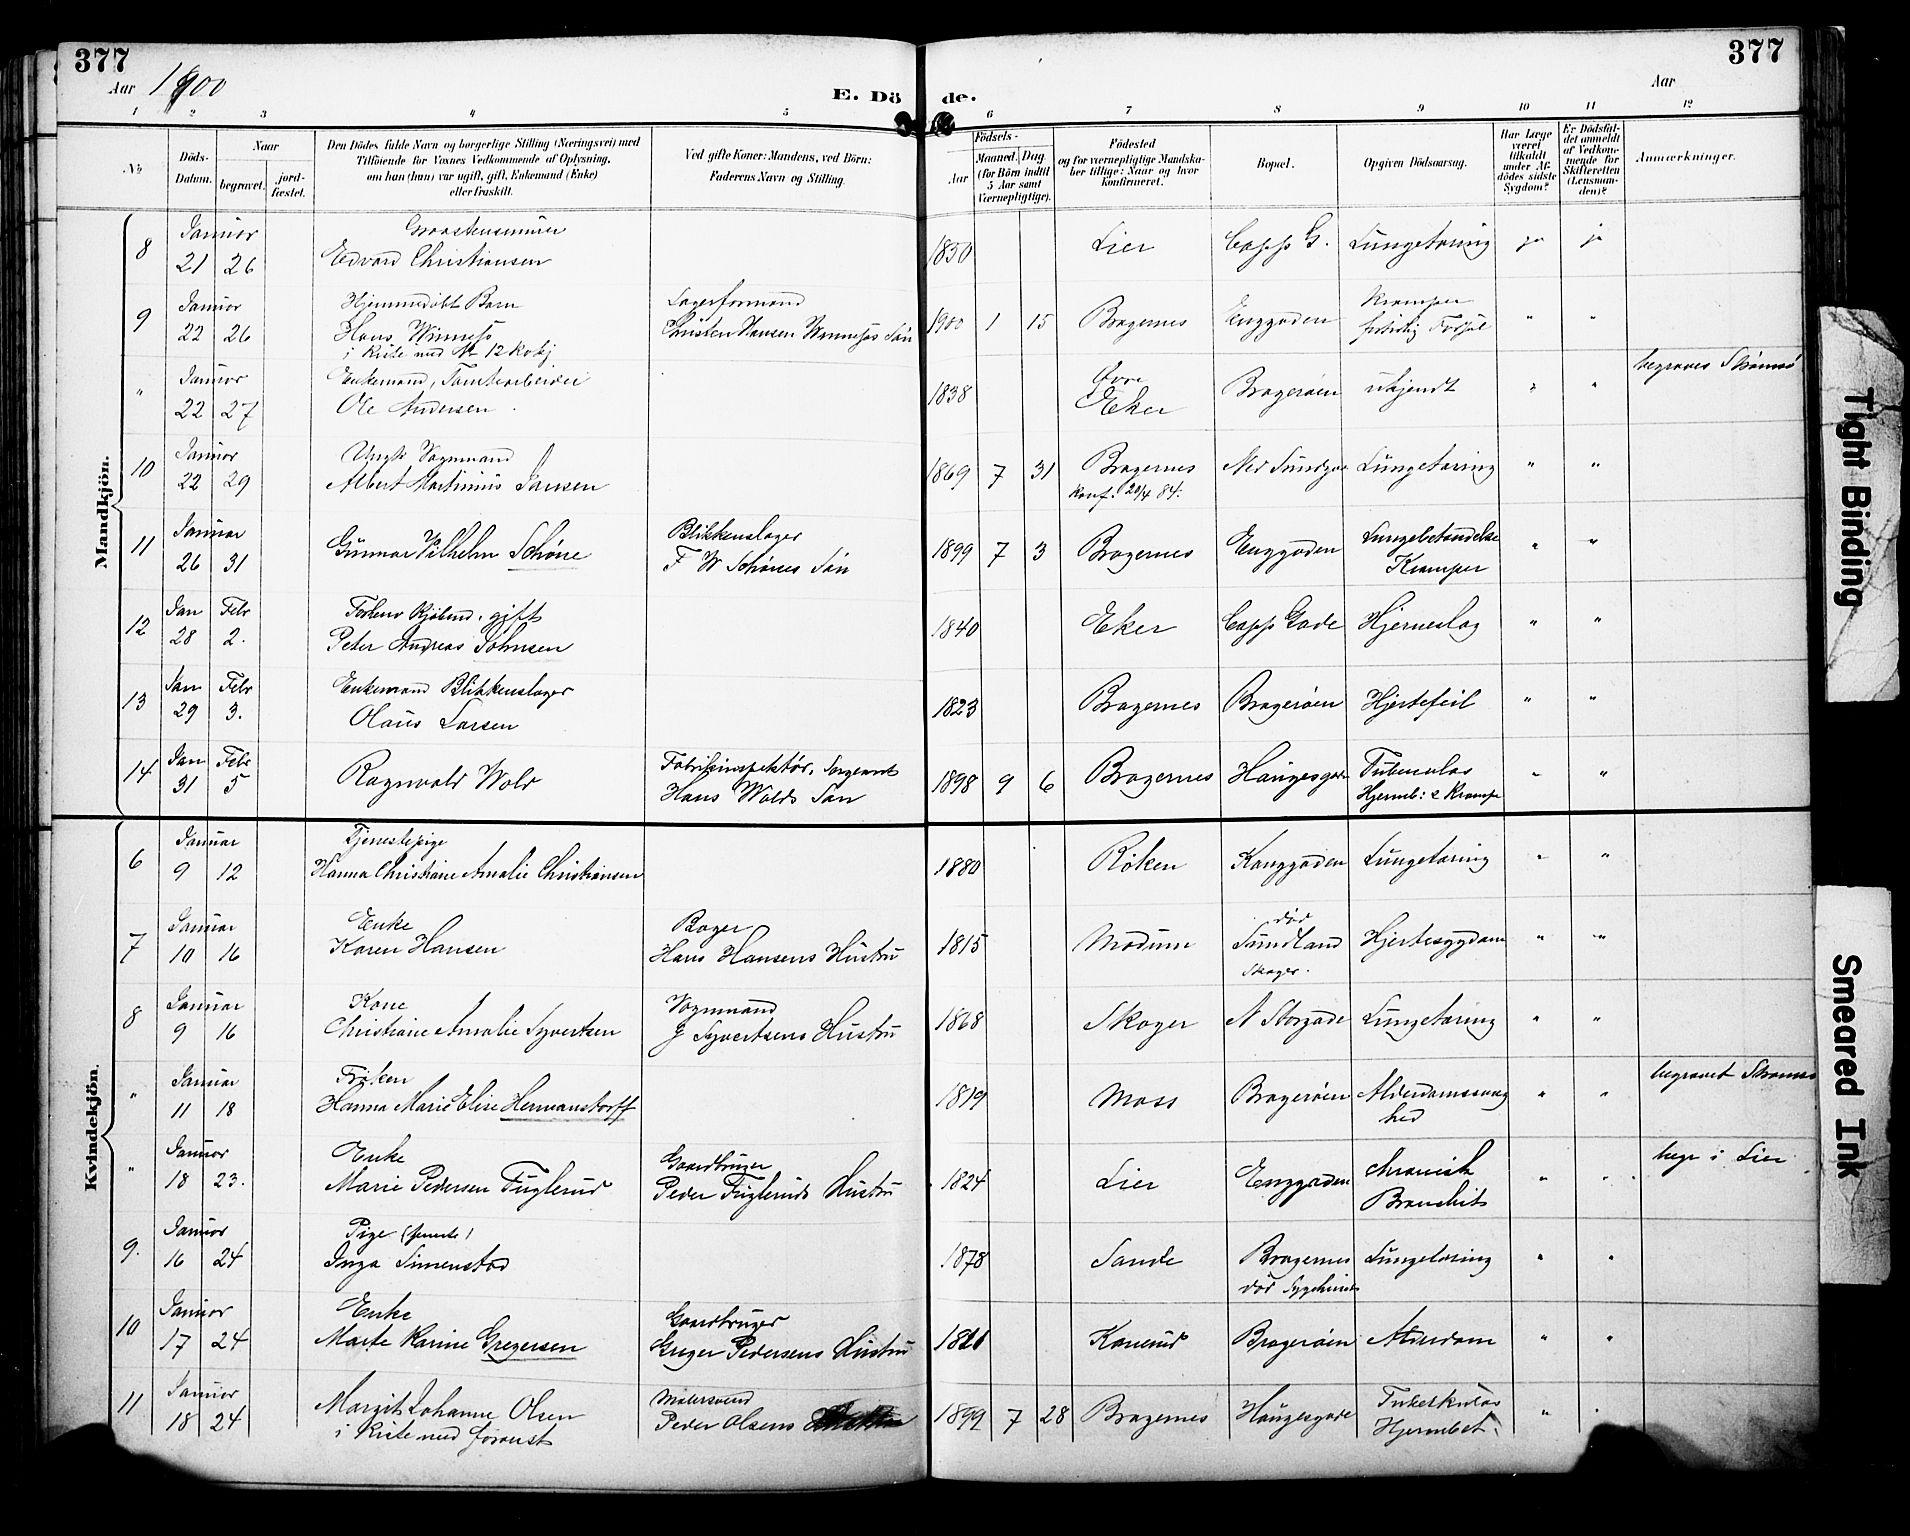 377
377
Aar 1900
E. Dö de.
Aar
1 2 3 4 5 6 7 8 9 10 11 12
No
Döds-Datum.
Naar
begravet.
jord-fæstet.
Den Dödes fulde Navn og borgerlige Stilling (Næringsvei) med
Tilföiende for Voxnes Vedkommende af Oplysning,
om han (hun) var ugift, gift, Enkemand (Enke)
eller fraskilt.
Ved gifte Koner: Mandens, ved Börn:
Faderens Navn og Stilling.
Födsels-
Aar
Maaned. Dag
(for Börn indtil
5 Aar samt
Værnepligtige).
Födested
og for værnepligtige Mandska-
ber tillige: Naar og hvor
konfirmeret.
Bopæl.
Opgiven Dödsaarsag.
Har Læge
været
tilkaldt
under Af-
dödes sidste
Sygdom?
Er Dödsfal-
det anmeldt
af Vedkom-
mende for
Skifteretten
(Lensman-
den)?
Anmærkninger.
Mandkjön.
8 Januar 21 26 Edvard Christiansen 1850 Lier Capp G. Lungetæring ja ja
9 Januar 22 26 Hjemmedøbt Barn
Hans Winness
i Kiste med No 12 Kvkj
Christen Hansen Winness Søn 1900 1 15 Bragernes Enggaden Kramper
Fødsel " "
" Januar 22 27 Enkemand, Tomtearbeider
Ole Andersen 1838 Øvre
Eker Bragerøen ukjendt " " begraves Strømsø
10 Januar 22 29 Ungk Vognmand
Albert Martinius Jansen 1869 7 31 Bragernes
konf. 20/4 84. Ned Lungetæring " "
11 Januar 26 31 Gunnar Vilhelm Schöne
Blikkenslager
F W Schönes Søn 1899 7 3 Bragernes Enggaden Lungebetændelse
Kramper " "
12 Jan Febr 28 2. gift
Peter Andreas Johnsen 1840 Eker Capp Gade Hjerneslag " "
13 Jan Febr 29 3. Enkemand Blikkenslager
Olaus Larsen 1823 Bragernes Bragerøen Hjertefeil " "
14 Jan Febr 31 5 Ragnvald Wold
Fabrikinspektør, Sergeant
Hans Wolds Søn 1898 9 6 Bragernes Haugesgade Tuberculøs
Hjernb: & Krampe " "
Kvindekjön.
6 Januar 9 12 Tjenestepige
Hanna Christiane Amalie Christiansen 1880 Røken Konggaden Lungetæring " "
7 Januar 10 16 Enke
Karen Hansen
Bager
Hans Hansens Hustru 1815 Modum død
Sundland
Skoger. Hjertesygdom " "
8 Januar 9 16 Kone
Christiane Amalie Syvertsen
Vognmand
J Syvertsens Hustru 1868 Skoger N Storgade Lungetæring " "
" Januar 11 18 Frøken
Hanna Marie Elise Hermanstorff 1819 Moss Bragerøen Alderdomssvag
hed " " begravet Strømsø
" Januar 18 23. Enke
Marie Pedersen Fuglerud
Gaardbruger
Peder Fugleruds Hustru 1824 Lier Enggaden chronisk
Bronchit " " begr i Lier
9. Januar 16 24 Pige
Inga Simenstad 1878 Sande Bragernes
død Sygehuset Lungetæring " "
10 Januar 17 24 Enke
Marte Karine Gregersen
Gaardbruger
Greger Pedersens Hustru Bragerøen Alderdom " "
11 Januar 18 24 Margit Johanne Olsen
i Kiste med
Malersvend
Peder Olsens 1899 7 28 Bragernes Haugesgade
Hjernebet. " "
Tight Binding
Smeared Ink